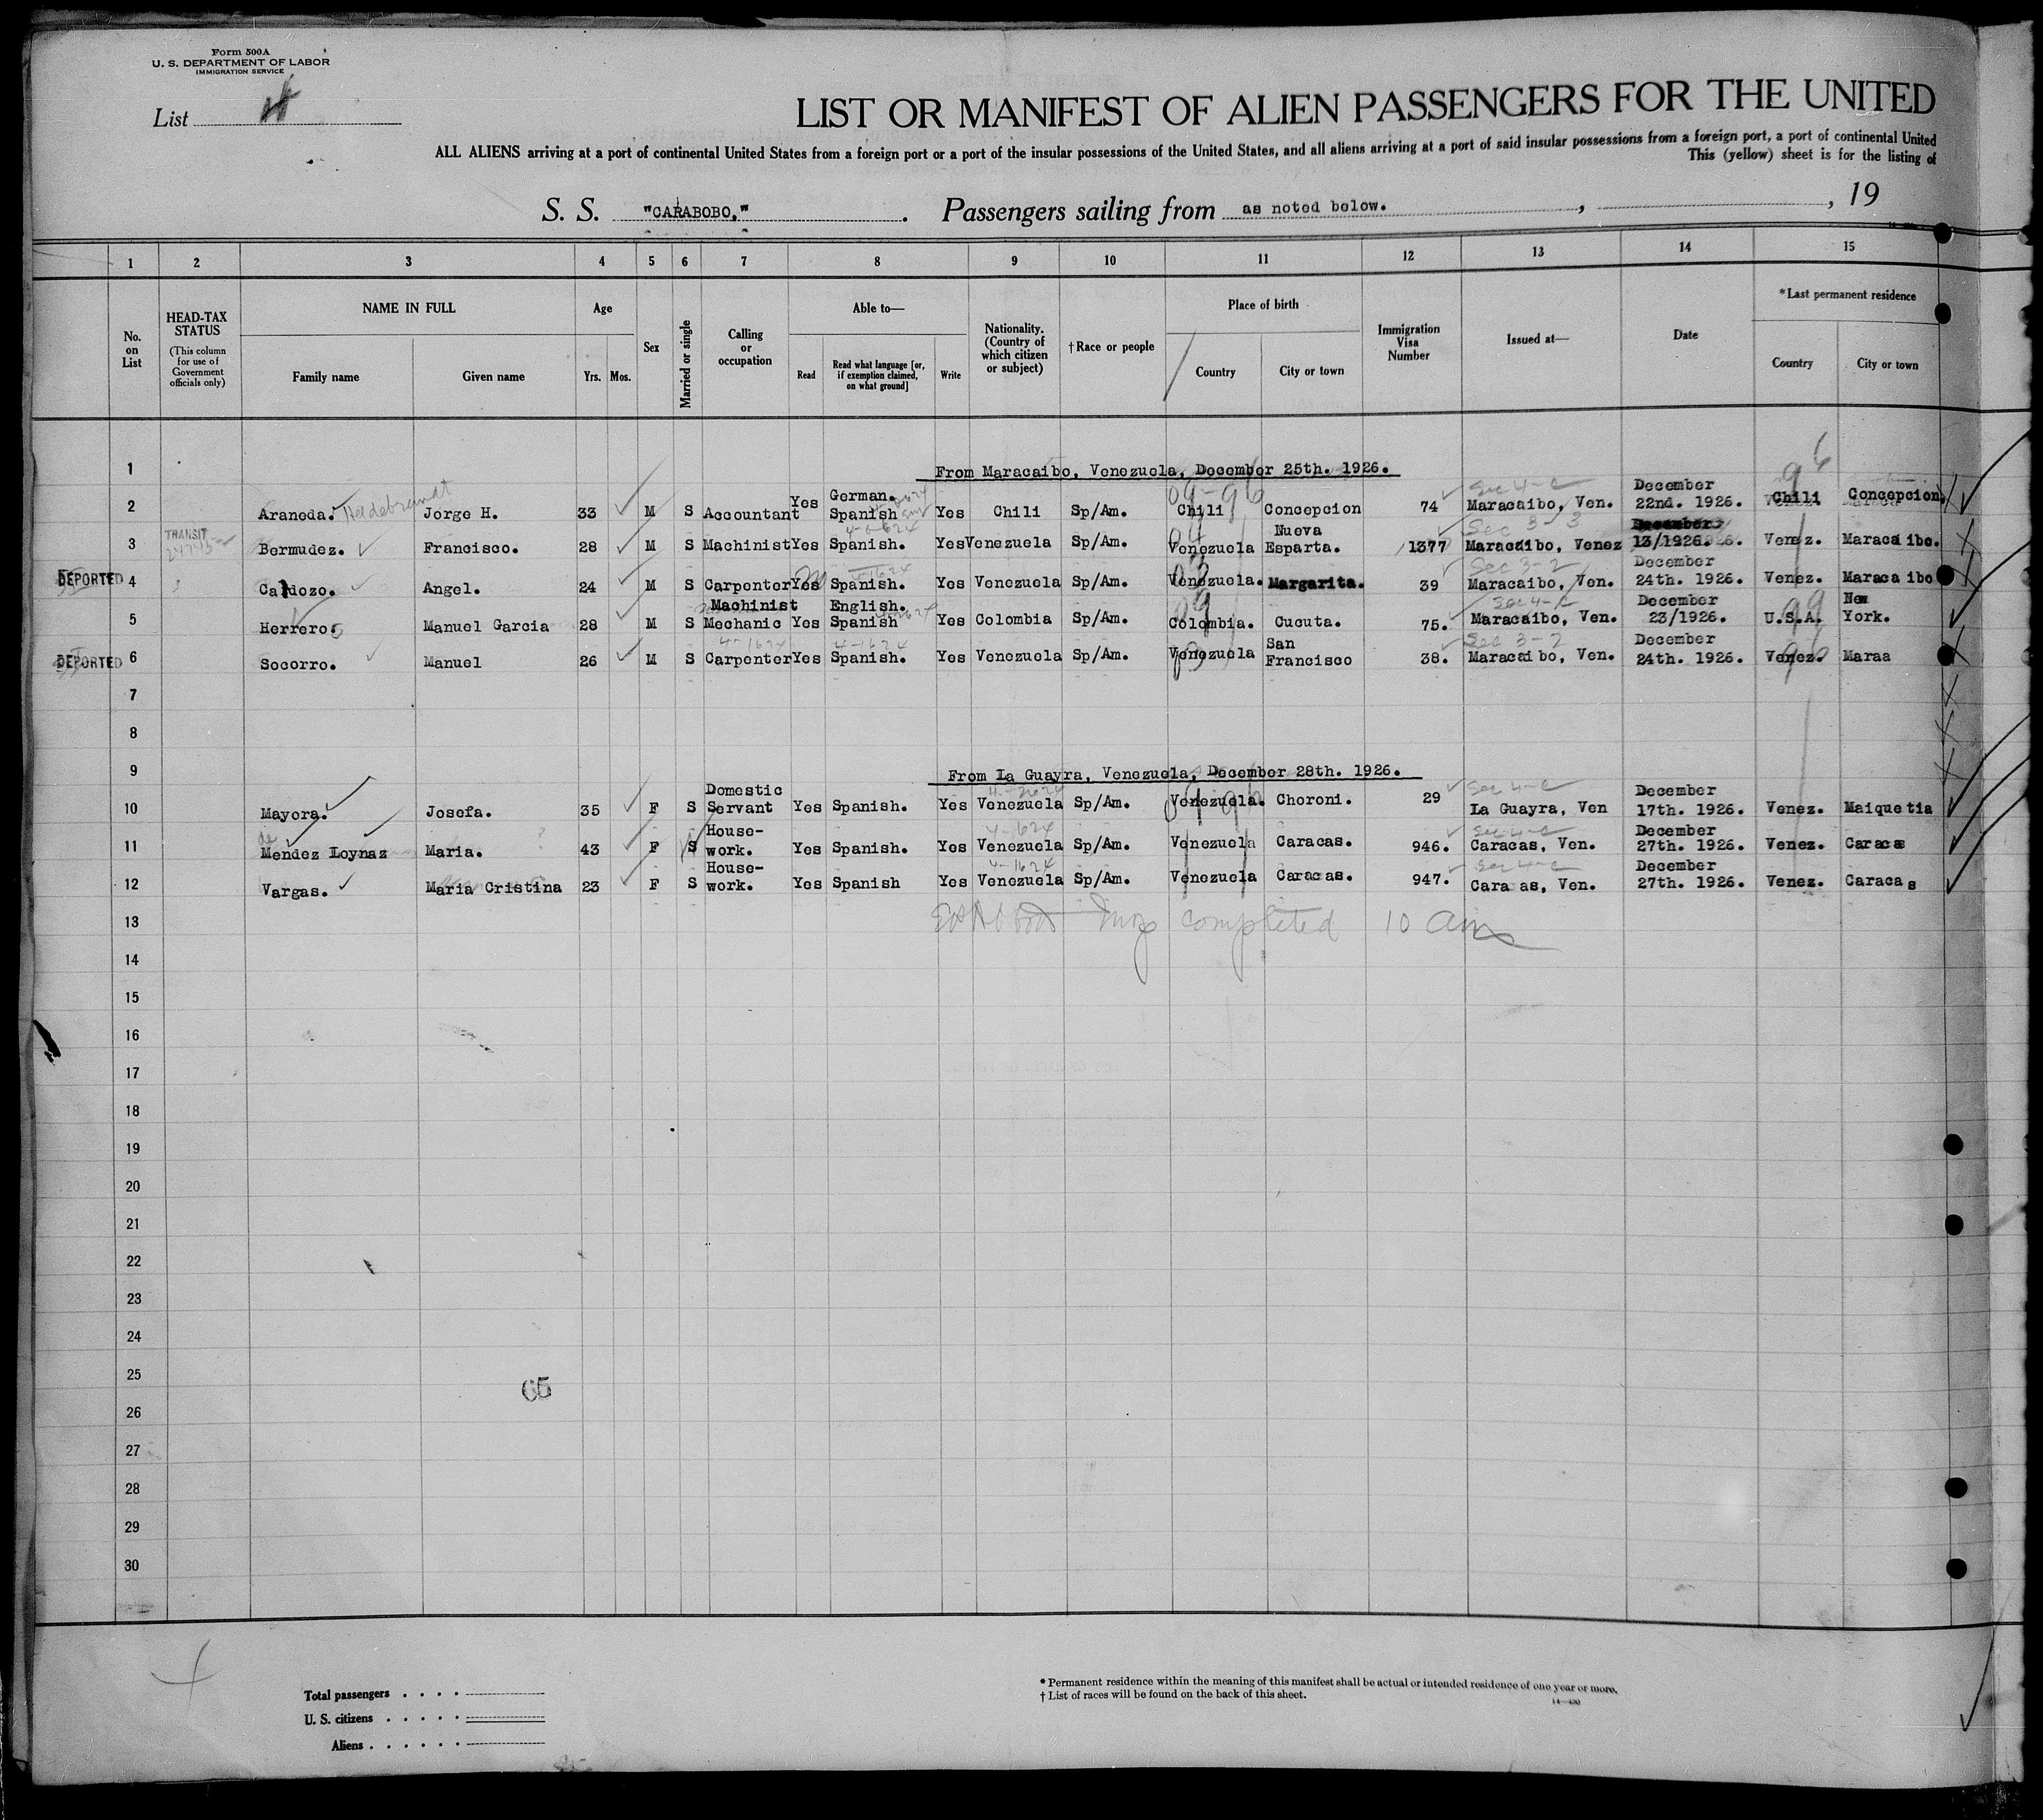 Form 500A
U. S. DEPARTMENT OF LABOR
IMMIGRATION SERVICE
List
LIST OR MANIFEST OF ALIEN PASSENGERS FOR THE UNITED
ALL ALIENS arriving at a port of continental United States from a foreign port or a port of the insular possessions of the United States, and all aliens arriving at a port of said insular possessions from a foreign port, a port of continental United
This (yellow) sheet is for the listing of
S. S. "CARABOBO." . Passengers sailing from as noted below. , , 19
1 2 3 4 5 6 7 8 9 10 11 12 13 14 15
No. on List
HEAD-TAX STATUS (This column for use of Government officials only)
NAME IN FULL
Family name
Given name
Age
Yrs. Mos.
Sex
Married or single
Calling or occupation
Able to—
Read
Read what language [or, if exemption claimed, on what ground]
Write
Nationality. (Country of which citizen or subject)
†Race or people
Place of birth
Country
City or town
Immigration Visa Number
Issued at—
Date
*Last permanent residence
Country
City or town
1 From Maracaibo, Venezuela, December 25th. 1926.
2 Araneda. Jorge H. 33 M S Accountant Yes German. Spanish Yes Chili Sp/Am. Chili Concepcion 74 Sec 4-c Maracaibo, Ven. December 22nd. 1926. Chili Concepcion,
3 TRANSIT Bermudez. Francisco. 28 M S Machinist Yes Spanish. Yes Venezuela Sp/Am. Venezuela Nueva Esparta. 1377 Sec 3-3 Maracaibo, Venez December 13/1926. Venez. Maracaibo.
DEPORTED 4 Cardozo. Angel. 24 M S Carpenter Yes Spanish. Yes Venezuela Sp/Am. Venezuela. Margarita. 39 Sec 3-2 Maracaibo, Ven. December 24th. 1926. Venez. Maracaibo
5 Herreros Manuel Garcia 28 M S Machinist Mechanic Yes English. Spanish Yes Colombia Sp/Am. Colombia. Cucuta. 75. Sec 4-c Maracaibo, Ven. December 23/1926. U.S.A. New York.
DEPORTED 6 Socorro. Manuel 26 M S Carpenter Yes Spanish. Yes Venezuela Sp/Am. Venezuela San Francisco 38. Sec 3-2 Maracaibo, Ven. December 24th. 1926. Venez. Maraa
7
8
9 From La Guayra, Venezuela, December 28th. 1926.
10 Mayora. Josefa. 35 F S Domestic Servant Yes Spanish. Yes Venezuela Sp/Am. Venezuela. Choroni. 29 Sec 4-c La Guayra, Ven December 17th. 1926. Venez. Maiquetia
11 de Mendez Loynaz Maria. 43 F S House-work. Yes Spanish. Yes Venezuela Sp/Am. Venezuela Caracas. 946. Sec 4-c Caracas, Ven. December 27th. 1926. Venez. Caracas
12 Vargas. Maria Cristina 23 F S House-work. Yes Spanish Yes Venezuela Sp/Am. Venezuela Caracas. 947. Sec 4-c Caracas, Ven. December 27th. 1926. Venez. Caracas
13 completed 10 am
14
15
16
17
18
19
20
21
22
23
24
25
65
26
27
28
29
30
Total passengers . . . .
U. S. citizens . . . . .
Aliens . . . . . .
* Permanent residence within the meaning of this manifest shall be actual or intended residence of one year or more.
† List of races will be found on the back of this sheet.